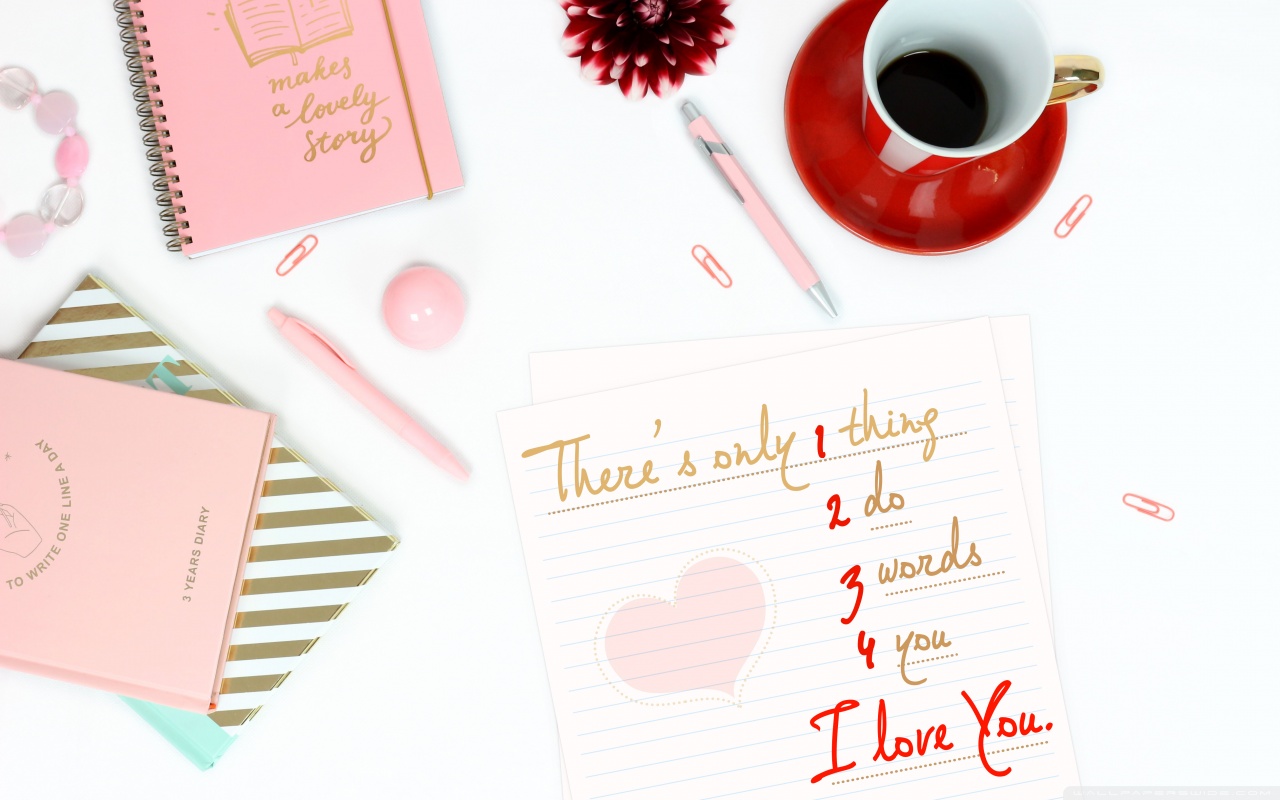 makes
a lovely
story
TO WRITE ONE LINE A DAY
3 YEARS DIARY
There's only 1 thing
2 do
3 words
4 you
I love You.
WALLPAPERSWIDE.COM